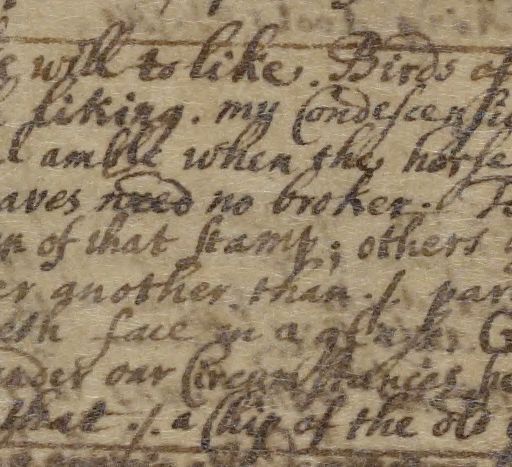 will to like. Birds of
liking. my Condescensi
amble when the horse
aves need no broker.
of that stamp; others
er another than ./. par
face in a glass,
under our Circumstances he
that ./. a Chip of the old